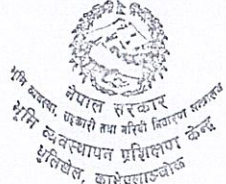 नेपाल सरकार
भूमि व्यवस्था, सहकारी तथा गरिबी निवारण मन्त्रालय
भूमि व्यवस्थापन प्रशिक्षण केन्द्र
धुलिखेल, काभ्रेपलाञ्चोक